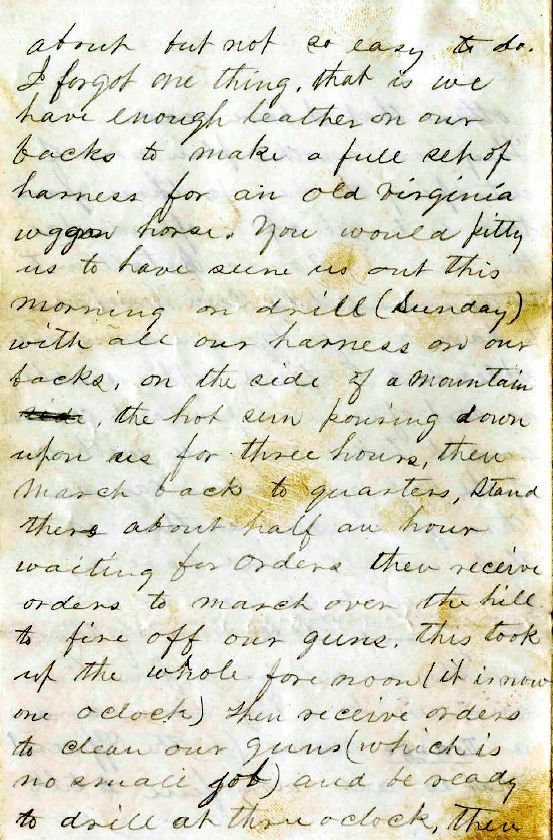 about but not so easy to do.
I forgot one thing, that is we
have enough leather on our
backs to make a full set of
harness for an old virginia
waggon horse. You would pitty
us to have seene us out this
morning on drill (Sunday)
with all our harness on our
backs, on the side of a mountain
side, the hot sun pouring down
upon us for three hours, then
march back to quarters, stand
there about half an hour
waiting for orders then receive
orders to march over the hill
to fire off our guns. this took
up the whole forenoon (it is now
one oclock) then receive orders
to clean our guns (which is
no small job) and be ready
to drill at three oclock, then